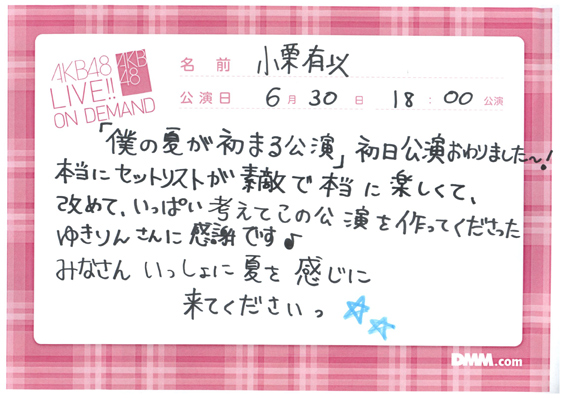 AKB48
LIVE!!
ON DEMAND
AKB
48
名前 小栗有以
公演日 6月30日 18:00公演
「僕の夏が初まる公演」初日公演おわりました〜!
本当にセットリストが素敵で本当に楽しくて、
改めて、いっぱい考えてこの公演を作ってくださった
ゆきりんさんに感謝です♪
みなさんいっしょに夏を感じに
来てくださいっ
DMM.com